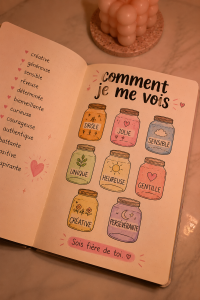 créative
généreuse
sensible
rêveuse
déterminée
bienveillante
curieuse
courageuse
authentique
battante
ositive
spirante
comment
je me vois
DRÔLE
JOLIE
SENSIBLE
UNIQUE
HEUREUSE
GENTILLE
CRÉATIVE
PERSÉVÉRANTE
Sois fière de toi